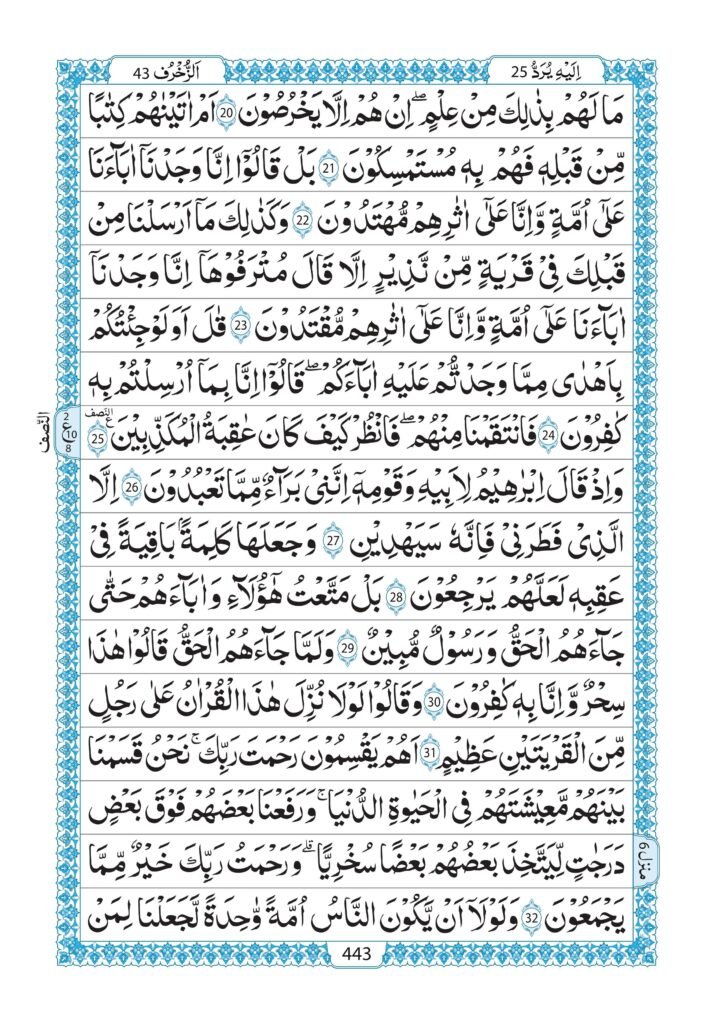 اَلزُّخْرُف 43
اِلَيْهِ يُرَدُّ 25
مَا لَهُمْ بِذٰلِكَ مِنْ عِلْمٍ ۗ اِنْ هُمْ اِلَّا يَخْرُصُوْنَ 20 اَمْ اٰتَيْنٰهُمْ كِتٰبًا
مِّنْ قَبْلِهٖ فَهُمْ بِهٖ مُسْتَمْسِكُوْنَ 21 بَلْ قَالُوْٓا اِنَّا وَجَدْنَآ اٰبَآءَنَا
عَلٰٓى اُمَّةٍ وَّاِنَّا عَلٰٓى اٰثٰرِهِمْ مُّهْتَدُوْنَ 22 وَكَذٰلِكَ مَآ اَرْسَلْنَا مِنْ
قَبْلِكَ فِيْ قَرْيَةٍ مِّنْ نَّذِيْرٍ اِلَّا قَالَ مُتْرَفُوْهَآ اِنَّا وَجَدْنَآ
اٰبَآءَنَا عَلٰٓى اُمَّةٍ وَّاِنَّا عَلٰٓى اٰثٰرِهِمْ مُّقْتَدُوْنَ 23 قٰلَ اَوَلَوْ جِئْتُكُمْ
بِاَهْدٰى مِمَّا وَجَدْتُّمْ عَلَيْهِ اٰبَآءَكُمْ ۗ قَالُوْٓا اِنَّا بِمَآ اُرْسِلْتُمْ بِهٖ
كٰفِرُوْنَ 24 فَانْتَقَمْنَا مِنْهُمْ ۗ فَانْظُرْ كَيْفَ كَانَ عَاقِبَةُ الْمُكَذِّبِيْنَ 25
النّصف
ع
2
10
8
النّصف
وَاِذْ قَالَ اِبْرٰهِيْمُ لِاَبِيْهِ وَقَوْمِهٖٓ اِنَّنِيْ بَرَآءٌ مِّمَّا تَعْبُدُوْنَ 26 اِلَّا
الَّذِيْ فَطَرَنِيْ فَاِنَّهٗ سَيَهْدِيْنِ 27 وَجَعَلَهَا كَلِمَةً ۢ بَاقِيَةً فِيْ
عَقِبِهٖ لَعَلَّهُمْ يَرْجِعُوْنَ 28 بَلْ مَتَّعْتُ هٰٓؤُلَآءِ وَاٰبَآءَهُمْ حَتّٰى
جَآءَهُمُ الْحَقُّ وَرَسُوْلٌ مُّبِيْنٌ 29 وَلَمَّا جَآءَهُمُ الْحَقُّ قَالُوْا هٰذَا
سِحْرٌ وَّاِنَّا بِهٖ كٰفِرُوْنَ 30 وَقَالُوْا لَوْلَا نُزِّلَ هٰذَا الْقُرْاٰنُ عَلٰى رَجُلٍ
مِّنَ الْقَرْيَتَيْنِ عَظِيْمٍ 31 اَهُمْ يَقْسِمُوْنَ رَحْمَتَ رَبِّكَ ۚ نَحْنُ قَسَمْنَا
بَيْنَهُمْ مَّعِيْشَتَهُمْ فِى الْحَيٰوةِ الدُّنْيَا ۚ وَرَفَعْنَا بَعْضَهُمْ فَوْقَ بَعْضٍ
دَرَجٰتٍ لِّيَتَّخِذَ بَعْضُهُمْ بَعْضًا سُخْرِيًّا ۗ وَرَحْمَتُ رَبِّكَ خَيْرٌ مِّمَّا
منزل 6
يَجْمَعُوْنَ 32 وَلَوْلَآ اَنْ يَّكُوْنَ النَّاسُ اُمَّةً وَّاحِدَةً لَّجَعَلْنَا لِمَنْ
443